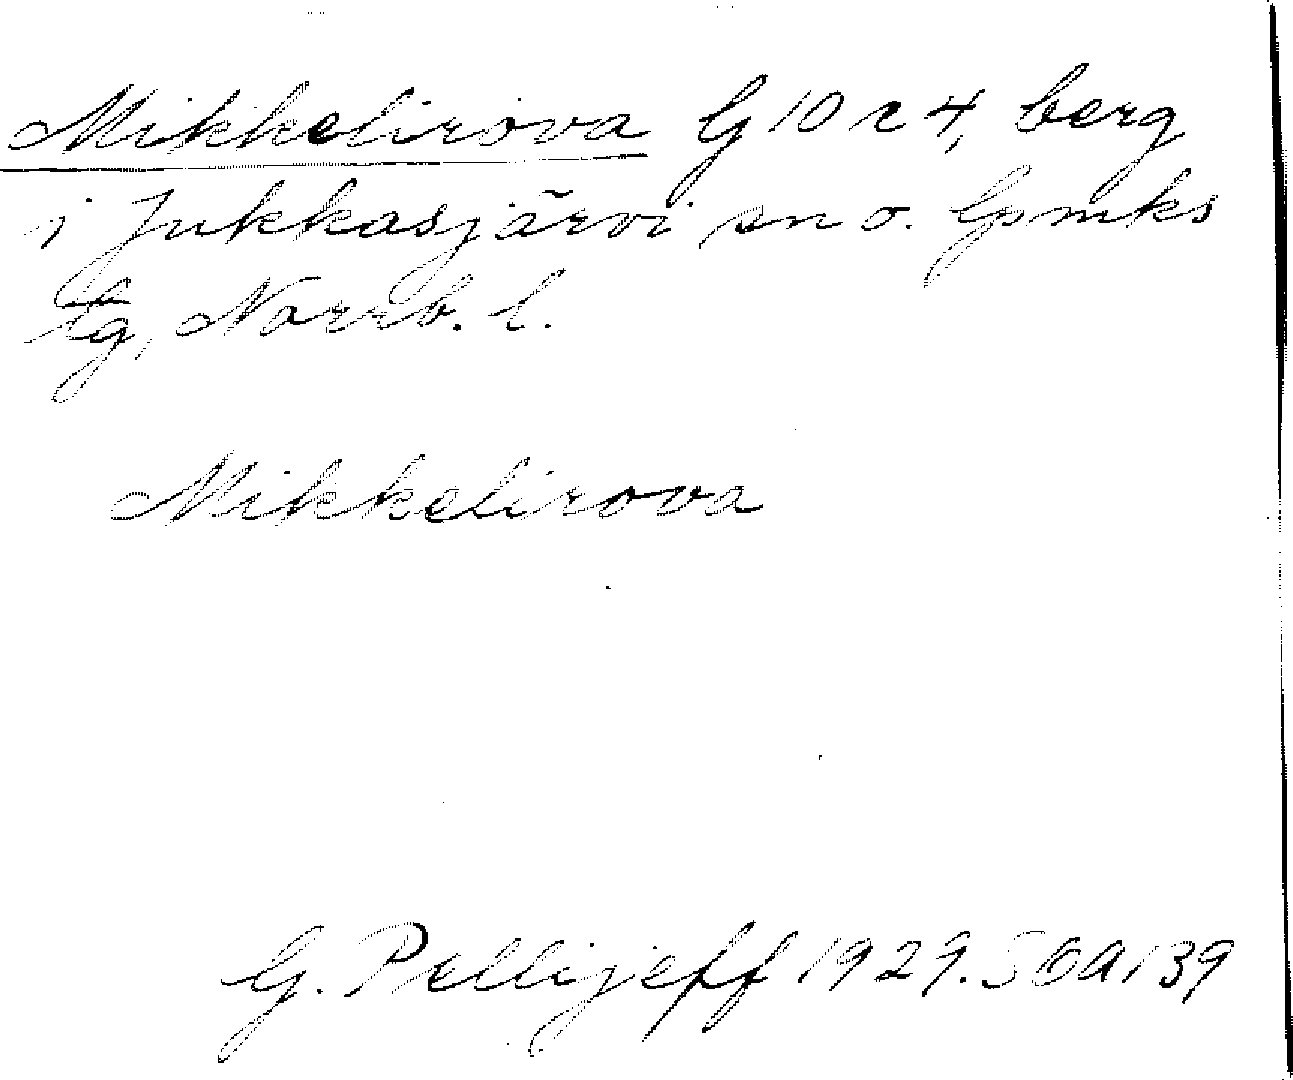 Mikkelirova G 10 r 4, berg
i Jukkasjärvi sn o. lpmks
tg, Norrb. l.
Mikkelirova
G. Pellijeff 1929. SOA 139